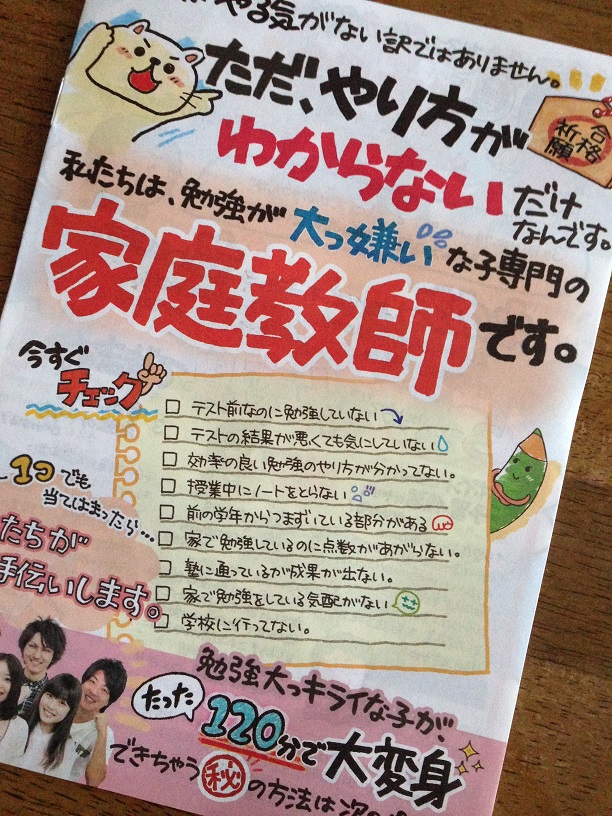 やる気がない訳ではありません。
ただ、やり方が
わからないだけ
なんです。
合格
祈願
私たちは、勉強が大っ嫌いな子専門の
家庭教師です。
今すぐ
チェック
テスト前なのに勉強していない
テストの結果が悪くても気にしていない
効率の良い勉強のやり方が分かってない。
授業中にノートをとらない
前の学年からつまずいている部分がある
家で勉強しているのに点数があがらない。
塾に通っているが成果が出ない。
家で勉強をしている気配がない
学校に行ってない。
1コでも
当てはまったら…
たちが
手伝いします。
勉強大っキライな子が、
たった120分で大変身
できちゃう㊙の方法は